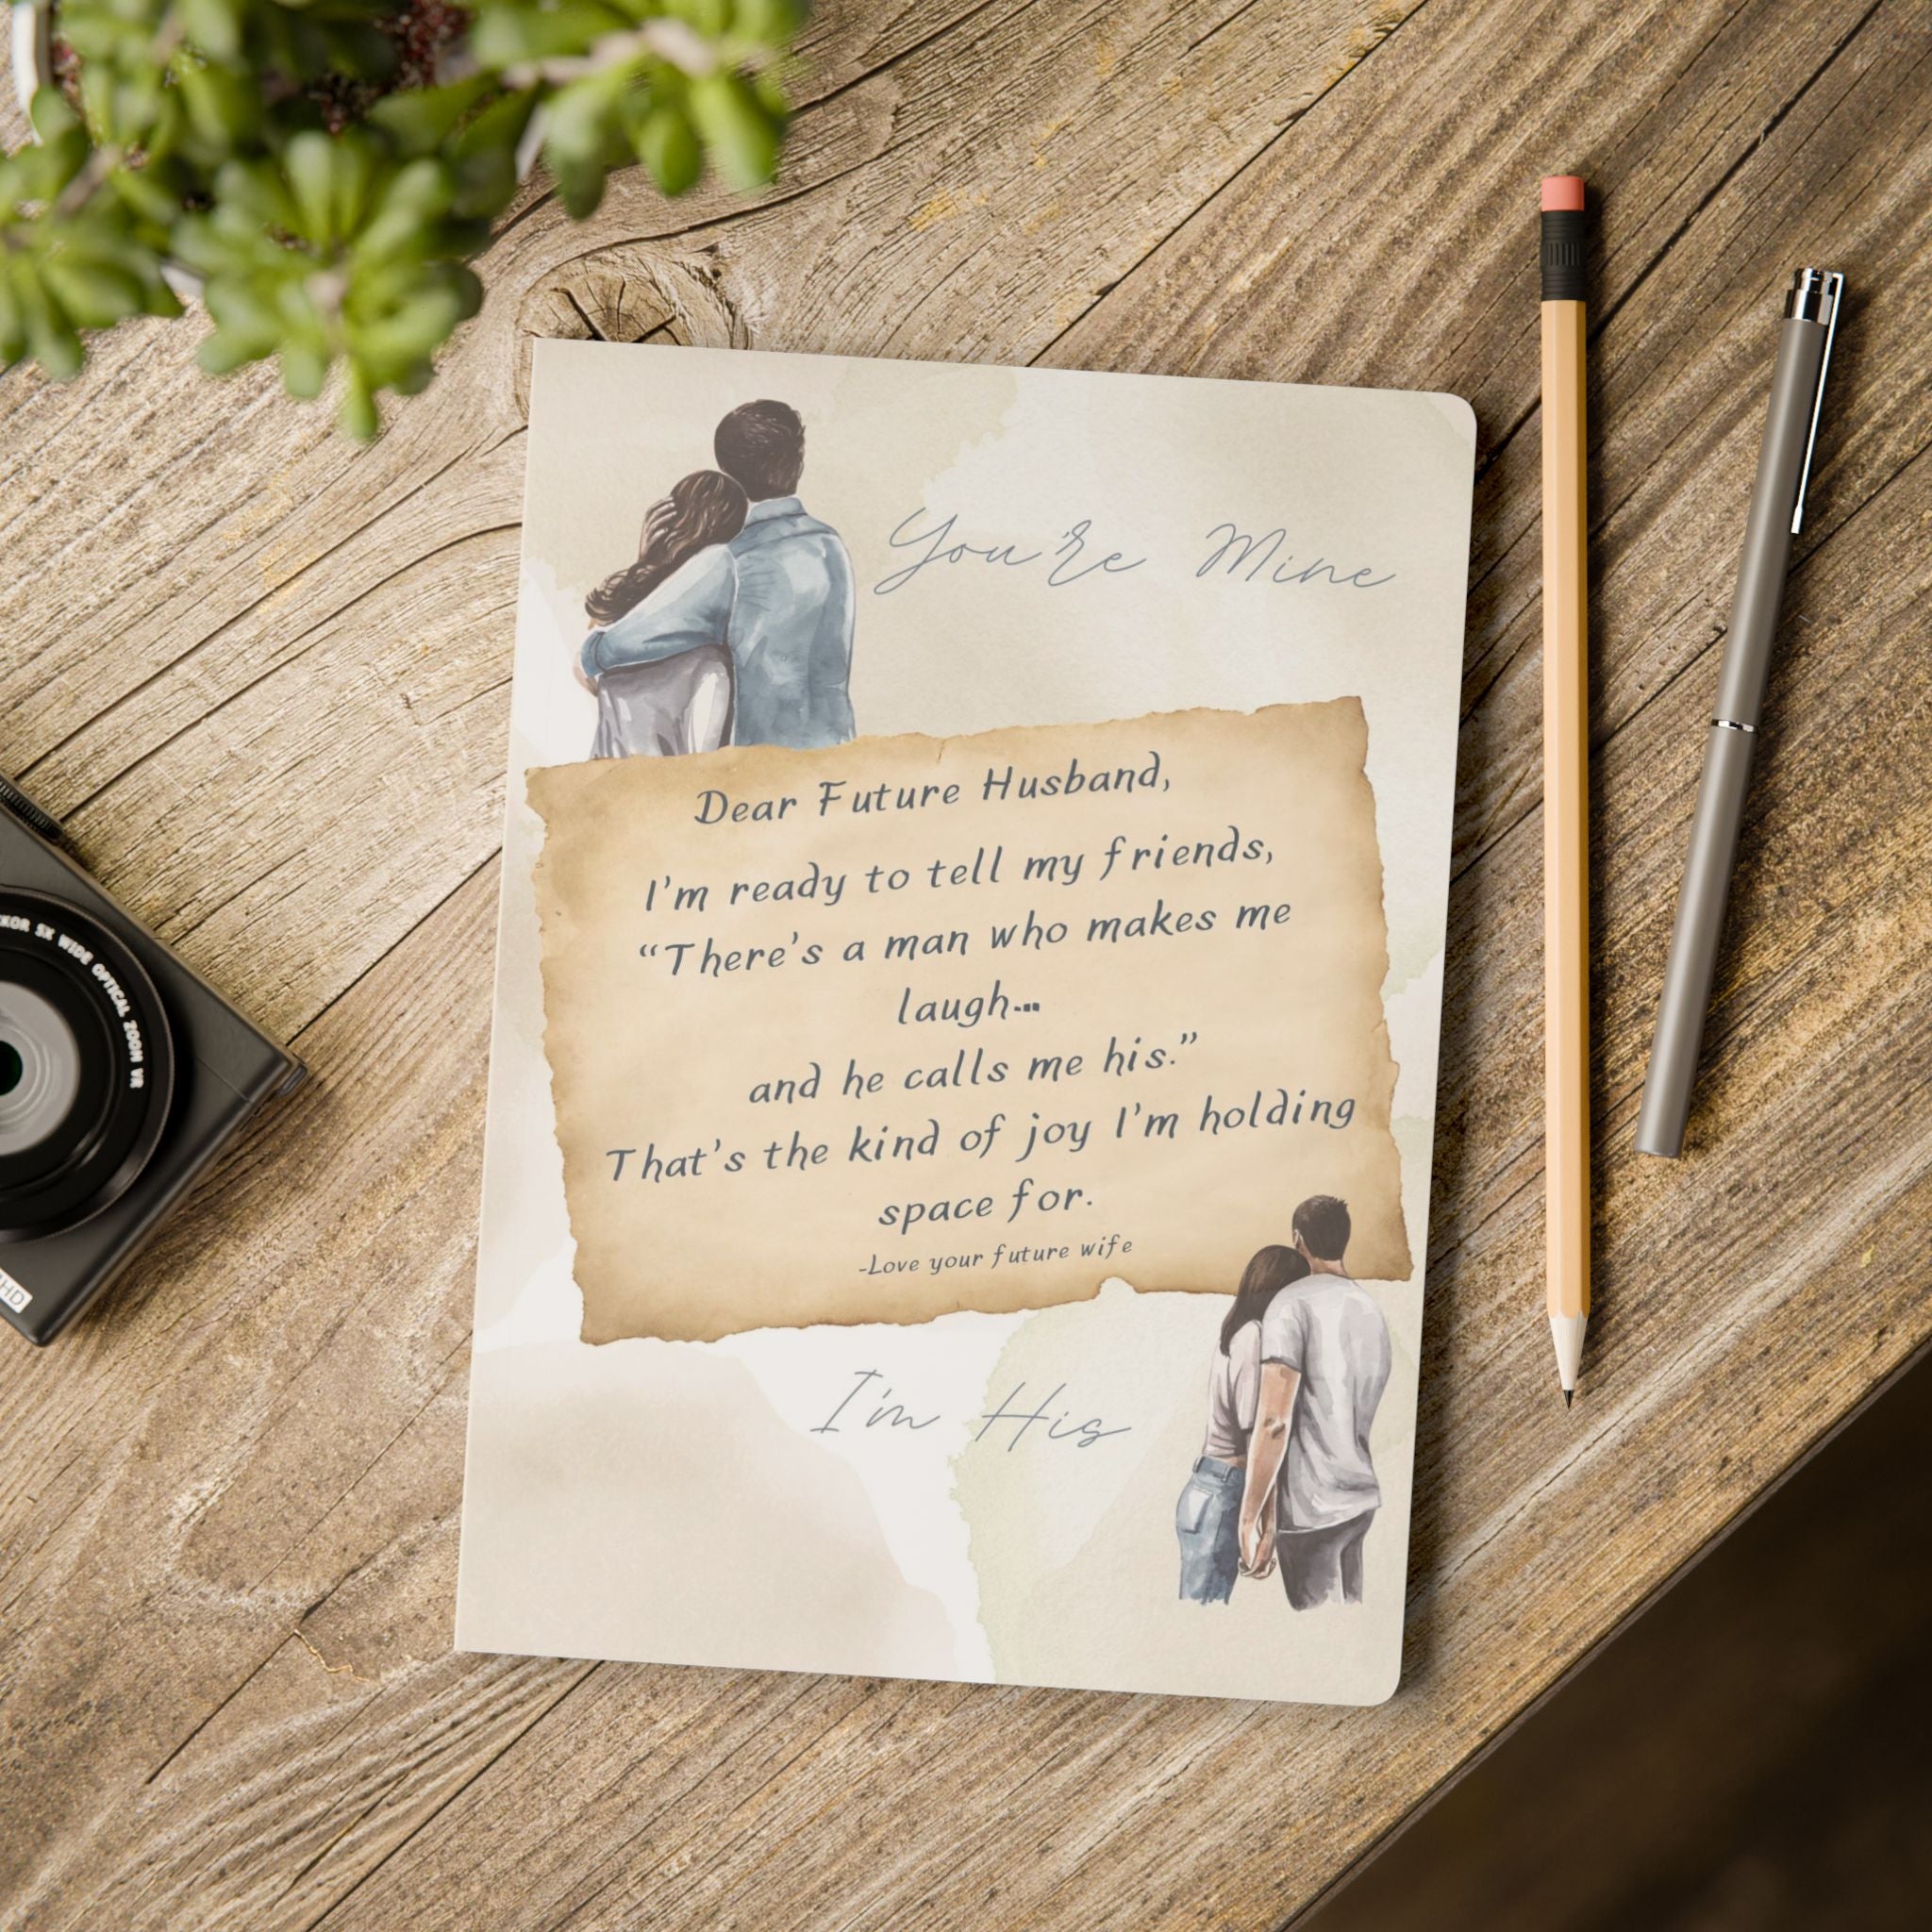 You're Mine
Dear Future Husband,
I'm ready to tell my friends,
“There's a man who makes me
laugh...
and he calls me his.”
That's the kind of joy I'm holding
space for.
-Love your future wife
I'm His
KOR 5X WIDE OPTICAL ZOOM VR
HD